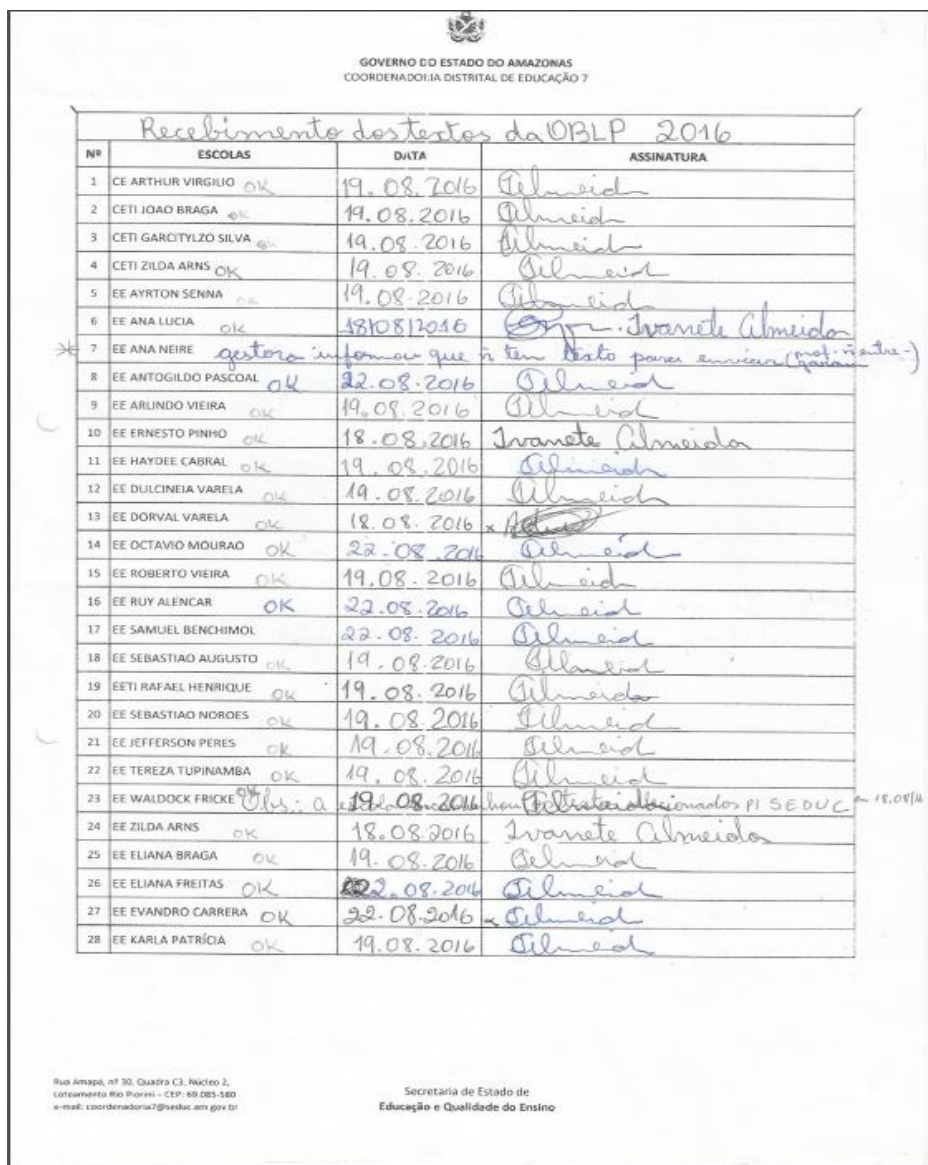 GOVERNO DO ESTADO DO AMAZONAS
COORDENADORIA DISTRITAL DE EDUCAÇÃO 7
Recebimento dos textos da OBLP 2016
Nº ESCOLAS DATA ASSINATURA
1 CE ARTHUR VIRGILIO OK 19.08.2016 Almeida
2 CETI JOAO BRAGA ok 19.08.2016 Almeida
3 CETI GARCITYLZO SILVA ok 19.08.2016 Almeida
4 CETI ZILDA ARNS OK 19.08.2016 Almeida
5 EE AYRTON SENNA OK 19.08.2016 Almeida
6 EE ANA LUCIA ok 18/08/2016 Ivanete Almeida
7 EE ANA NEIRE gestora informou que ñ tem texto para enviar (prof. ñ entregaram)
8 EE ANTOGILDO PASCOAL OK 22.08.2016 Almeida
9 EE ARLINDO VIEIRA OK 19.08.2016 Almeida
10 EE ERNESTO PINHO OK 18.08.2016 Ivanete Almeida
11 EE HAYDEE CABRAL OK 19.08.2016 Almeida
12 EE DULCINEIA VARELA OK 19.08.2016 Almeida
13 EE DORVAL VARELA OK 18.08.2016 x
14 EE OCTAVIO MOURAO OK 22.08.2016 Almeida
15 EE ROBERTO VIEIRA OK 19.08.2016 Almeida
16 EE RUY ALENCAR OK 22.08.2016 Almeida
17 EE SAMUEL BENCHIMOL 22.08.2016 Almeida
18 EE SEBASTIAO AUGUSTO OK 19.08.2016 Almeida
19 EETI RAFAEL HENRIQUE OK 19.08.2016 Almeida
20 EE SEBASTIAO NOROES OK 19.08.2016 Almeida
21 EE JEFFERSON PERES OK 19.08.2016 Almeida
22 EE TEREZA TUPINAMBA OK 19.08.2016 Almeida
23 EE WALDOCK FRICKE OK Obs.: a escola 19.08.2016 P/ SEDUC 18.08/16
24 EE ZILDA ARNS OK 18.08.2016 Ivanete Almeida
25 EE ELIANA BRAGA OK 19.08.2016 Almeida
26 EE ELIANA FREITAS OK 22.08.2016 Almeida
27 EE EVANDRO CARRERA OK 22.08.2016 x Almeida
28 EE KARLA PATRÍCIA OK 19.08.2016 Almeida
Rua Amapá, nº 30, Quadra C3, Núcleo 2,
Loteamento Rio Piorini – CEP: 69.085-580
e-mail: coordenadoria7@seduc.am.gov.br
Secretaria de Estado de
Educação e Qualidade do Ensino